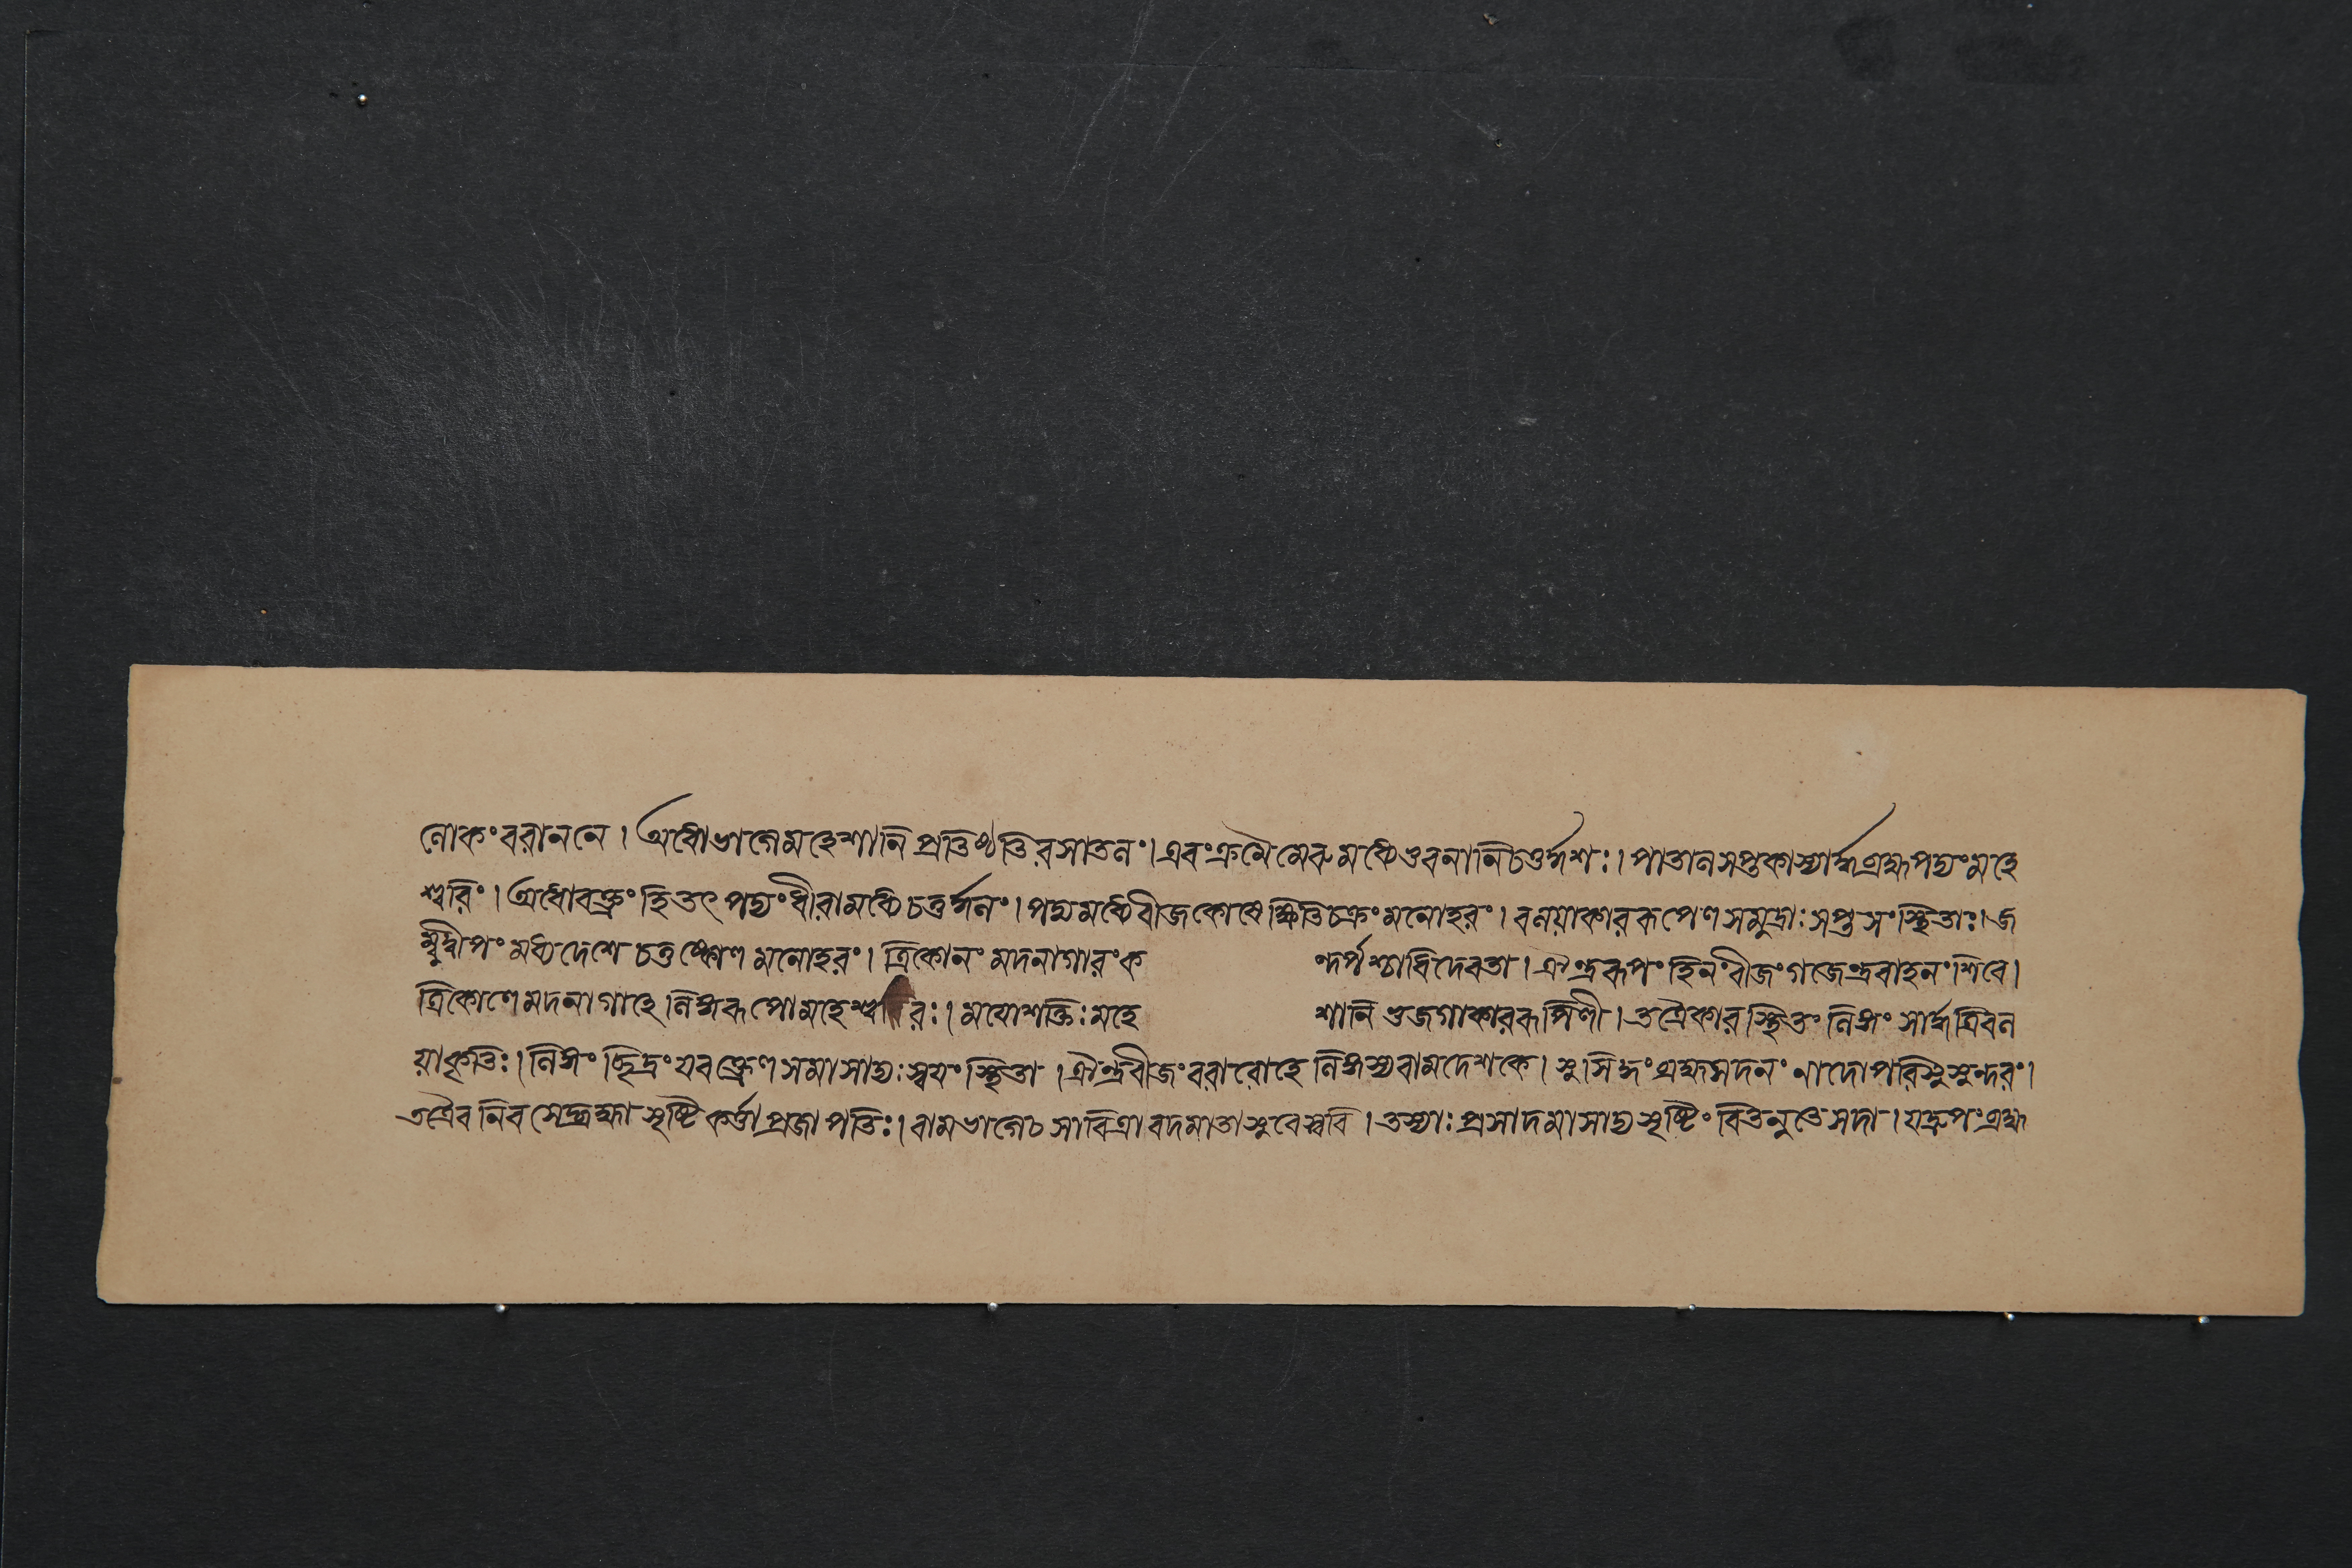 লোকং বরাননে । অধোভাগেমহেশানি প্রতিথতিরসাতলং । এবংক্রমৈ মেরুমধ্যেভুবনানিচতুর্দ্দশঃ । পাতালসপ্তকাস্যার্দ্ধব্রহ্মপদ্মংমহে
শ্বরিং । অধোবক্ত্রংহিতৎ পদ্মংধীরামধ্যেচতুর্দ্দলং । পদ্মমধ্যেবীজকোষেক্ষিতিচক্রংমনোহরং । বলয়াকাররূপেণ সমুদ্রাঃসপ্তসংস্থিতাঃ । জ
ম্বুদ্বীপং মধ্যদেশে চতুষ্কোণ মনোহরং । ত্রিকোনং মদনাগারংক ন্দর্পশ্চাধিদেবতা । ঐন্দ্ররূপংহিলংবীজংগজেন্দ্রবাহনংশিবে ।
ত্রিকোণেমদনাগাহে লিঙ্গরূপোমহেশ্বরঃ । মযোশক্তিঃমহে শানি ভুজগাকাররূপিণী । তত্রৈকারস্থিতং লিঙ্গং সার্দ্ধত্রিবল
য়াকৃতিঃ । লিঙ্গং ছিদ্রংযবক্ত্রেণ সমাসাদ্যঃস্বয়ংস্থিতা । ঐন্দ্রবীজংবরারোহে লিঙ্গস্যবামদেশকে । সুসিদ্ধংব্রহ্মসদনং নাদোপরিসুসুন্দরং ।
তত্রৈব নিবসেদ্ব্রহ্মা সৃষ্টিকর্ত্তাপ্রজাপতিঃ । বামভাগেচ সাবিত্রাবদমাতাসুবেস্বরি । তস্যাঃপ্রসাদমাসাদ্যসৃষ্টিং বিতনুতেসদা । যদ্রূপংব্রহ্ম